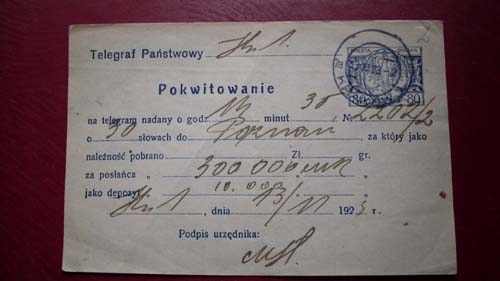 Telegraf Państwowy Kr 1.
POCZTA POLSKA
80 80
Pokwitowanie
na telegram nadany o godz. 14 minut 30 № 2202/2
o 30 słowach do Poznań za który jako
należność pobrano Zł. gr.
za posłańca „ 300 000 mk „
jako depozyt „ 10.000 „
Kr 1, dnia 13/11 1923 r.
Podpis urzędnika: